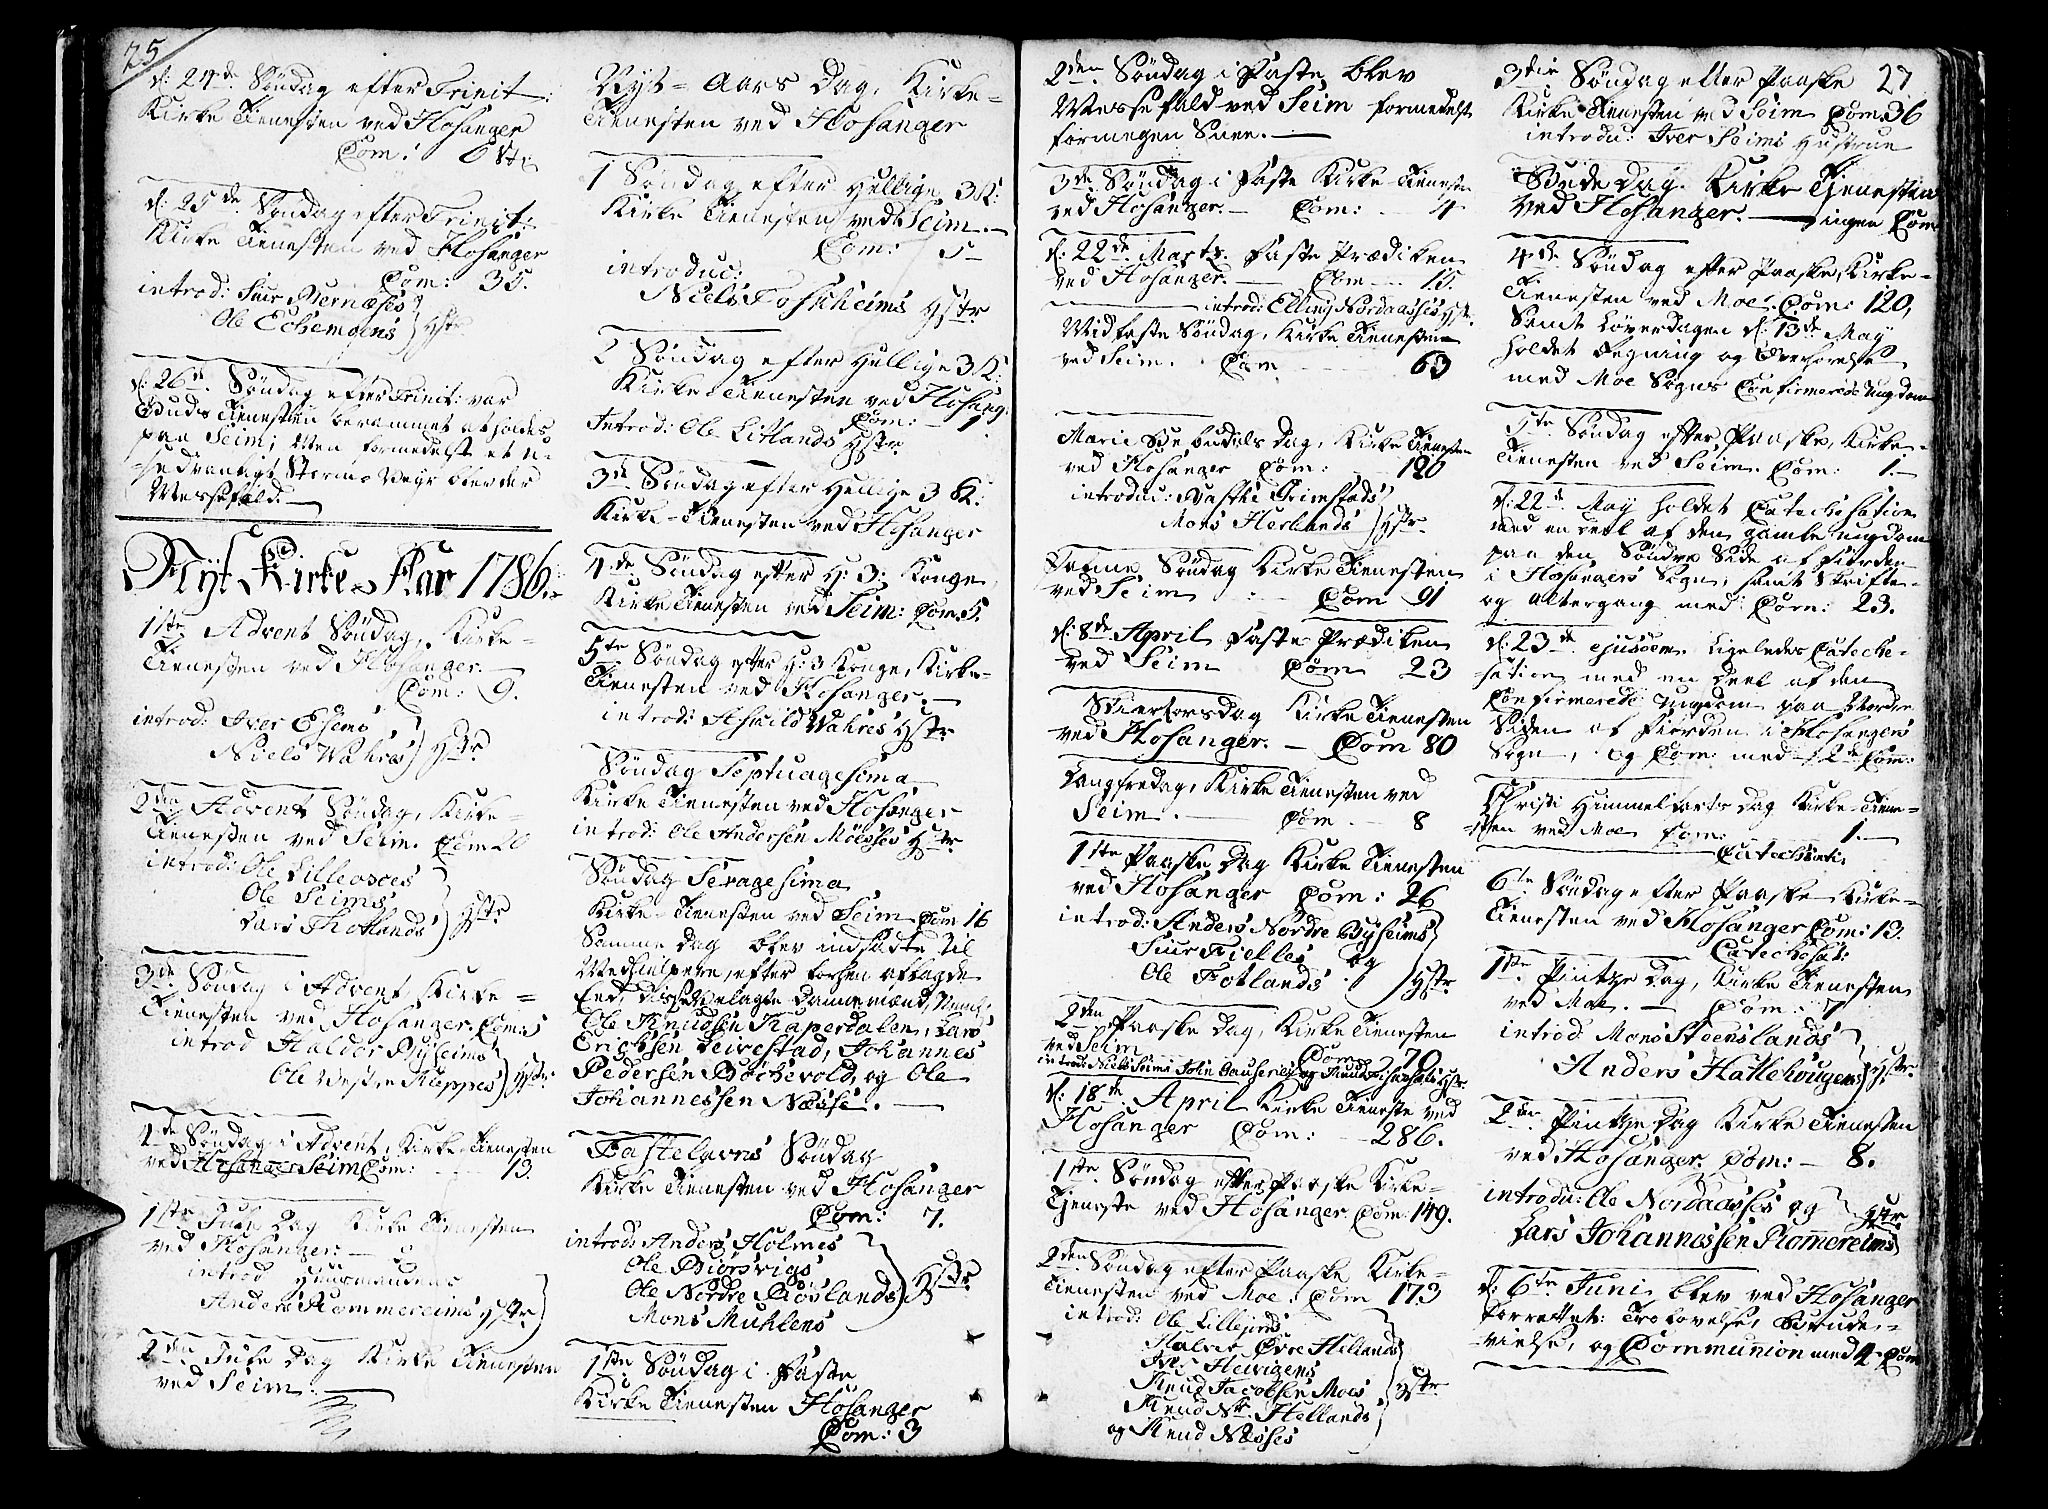 25
d: 24de Søndag efter Trinit:
Kirke Tienesten ved Hosanger
Com: 6
d: 25de Søndag efter Trinit:
Kirke Tienesten ved Hosanger
Com: 35.
introd: Siur Bernæses
Ole Echemgens } Hstr
d: 26de Søndag efter Trinit: var
Guds Tienesten berammet at holdes
paa Seim; Men formedelst et u-
sædvanligt Storms Veyr blev der
Messefald.
Nyt Kirke-Aar 1786.
1ste Advent Søndag, Kirke-
Tienesten ved Hosanger.
Com: 9.
introd: Iver Esems
Niels Wahres } Hstr
2den Advent Søndag, Kirke-
Tienesten ved Seim. Com 20
introd: Ole Lilleoses
Ole Seims
Lars Totlands } Hstr
3de Søndag i Advent Kirke-
Tienesten ved Hosanger. Com: 5
introd Haldor Byseims
Ole Westre Kleppes } Hstr
4de Søndag i Advent, Kirke-Tienesten
ved Hosanger Seim Com: 13.
1ste Jule Dag Kirke Tienesten
ved Hosanger.
introd Huusmandens
Anders Rommereims Hstr
2den Jule Dag Kirke Tienesten
ved Seim.
Nyt-Aars Dag, Kirke-
Tienesten ved Hosanger
1 Søndag efter Hellige 3 K:
Kirke Tienesten ved Seim.
Com: 5
introduc:
Niels Toskheims Hstr
2 Søndag efter Hellige 3 K:
Kirke Tienesten ved Hosang:
Com: 1.
Introd: Ole Litlands Hstr
3de Søndag efter Hellige 3 K:
Kirke-Tienesten ved Hosanger
4de Søndag efter H: 3: Konge
Kirke Tienesten ved Seim: Com: 5.
5te Søndag efter H: 3 Konge, Kirke-
Tienesten ved Hosanger.
introd: Asuild Wahres Hstr
Søndag Septuagesima
Kirke Tienesten ved Hosanger
introd: Ole Andersen Hstr
Søndag Sexagesima
Kirke-Tienesten ved Seim Com 16
Samme Dag blev indsadte til
Medhielpere, efter forhen aflagde
Eed, disse Dannemænd, Neml:
Ole Knudsen Kaperdalen, Lars
Erichsen Leirestad, Johannes
Pedersen Bochevold, og Ole
Johannessen Næsse.
Fastelavns Søndag
Kirke Tienesten ved Hosanger
Com: 7.
introd: Anders Holmes
Ole Biørsvigs
Ole Nordre Røslands
Mons Muhlens } Hstr
1ste Søndag i Faste
Kirke Tienesten Hosanger
Com: 3
2den Søndag i Faste, blev
Messefald ved Seim formedelst
formegen Snee.
3de Søndag i Faste Kirke-Tienesten
ved Hosanger. Com: 4
d: 22de Marts. Faste Prædiken
ved Hosanger. Com 15.
introd: Elling Nordaasses Hstr.
Midfaste Søndag, Kirke Tienesten
ved Seim. Com 63
Marie Bebudels Dag, Kirke Tienesten
ved Hosanger Com: 120
introduc: Grimstads
Mons Herlands } Hstr.
Palme Søndag Kirke Tienesten
ved Seim Com 91
d: 8de April Faste Prædiken
ved Seim Com 23
Skiertorsdag Kirke Tienesten
ved Hosanger. Com 80
Langfredag, Kirke Tienesten ved
Seim. Com. 8
1ste Paaske Dag Kirke Tienesten
ved Hosanger Com: 26
introd: Anders Nordre Byseims
Siur Fielles og
Ole Fotlands } Hstr
2den Paaske Dag, Kirke Tienesten
ved Seim Com 270
introd: Niels Seims John og Knud Hstr.
d: 18de April Kirke Tieneste ved
Hosanger Com: 286.
1ste Søndag efter Paaske Kirke-
Tjeneste ved Hosanger. Com: 149.
2den Søndag efter Paaske Kirke-
Tienesten ved Moe: Com 173
introd: Ole Lillejords
Halvor Øvre Hellands
Heirigens
Knud Jacobsen Moes
Knud Ns. Hellands
og Knud Næsses } Hstr
3die Søndag efter Paaske 27
Kirke Tienesten ved Seim Com. 36
introdu: Iver Seims Hustrue
Bede Dag. Kirke Tjenesten
ved Hosanger. ingen Com
4de Søndag efter Paaske, Kirke-
Tienesten ved Moe. Com: 120,
Samt Løverdagen d: 13de May
holdet Tegning og Overhørelse
med Moe Sogns Confirmerede Ungdom
5te Søndag efter Paaske, Kirke-
Tienesten ved Seim. Com: 1.
d: 22de May holdet Catechisation
med en Deel af den gamle Ungdom
paa den Søndre Side af Fiorden
i Hosangers Sogn; samt Skrifte-
og Altergang med: Com: 23.
d: 23de ejusdem. ligeledes Cateche-
sation med en Deel af den
Confirmerede Ungdom paa Nordre
Siden af Fiorden i Hosangers
Sogn, og Com: med 12de Com:
Christi Himmelfarts Dag Kirke-Tiene-
sten ved Moe Com: 1.
Catechisati
6te Søndag efter Paaske Kirke-
Tienesten ved Hosanger Com: 13.
Catechisat:
1ste Pintze Dag, Kirke Tienesten
ved Moe. Com: 7
introd: Mons Steenslands
Anders Hatlehougens } Hstr.
2den Pintze Dag Kirke Tienesten
ved Hosanger. Com: 8.
introdu: Ole Nordaasses og
Lars Johannessen Romereims } Hstr
d: 6te Juni, blev ved Hosanger
forrettet: Trolovelse, Brude-
vielse, og Communion med 4 Com